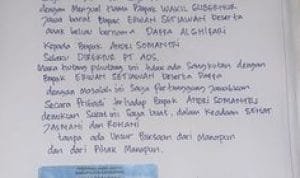 dengan Menjual Nama Bapak WAKIL GUBERNUR
Jawa barat Bapak ERWAN SETIAWAN beserta
anak beliau bernama DAFFA ALGHIFARI
Kepada Bapak ANDRI SOMANTRI
Selaku DIREKTUR PT ADS.
hutang piutang ini tidak ada sangkutan dengan
Bapak ERWAN SETIAWAN beserta DAFFA
dengan masalah ini Saya bertanggung Jawabkan
Secara Pribadi terhadap Bapak ANDRI SOMANTRI
demikian Surat ini Saya buat, dalam Keadaan SEHAT
JASMANI dan ROHANI
tanpa ada Unsur Paksaan dari Manapun
dan dari Pihak Manapun.